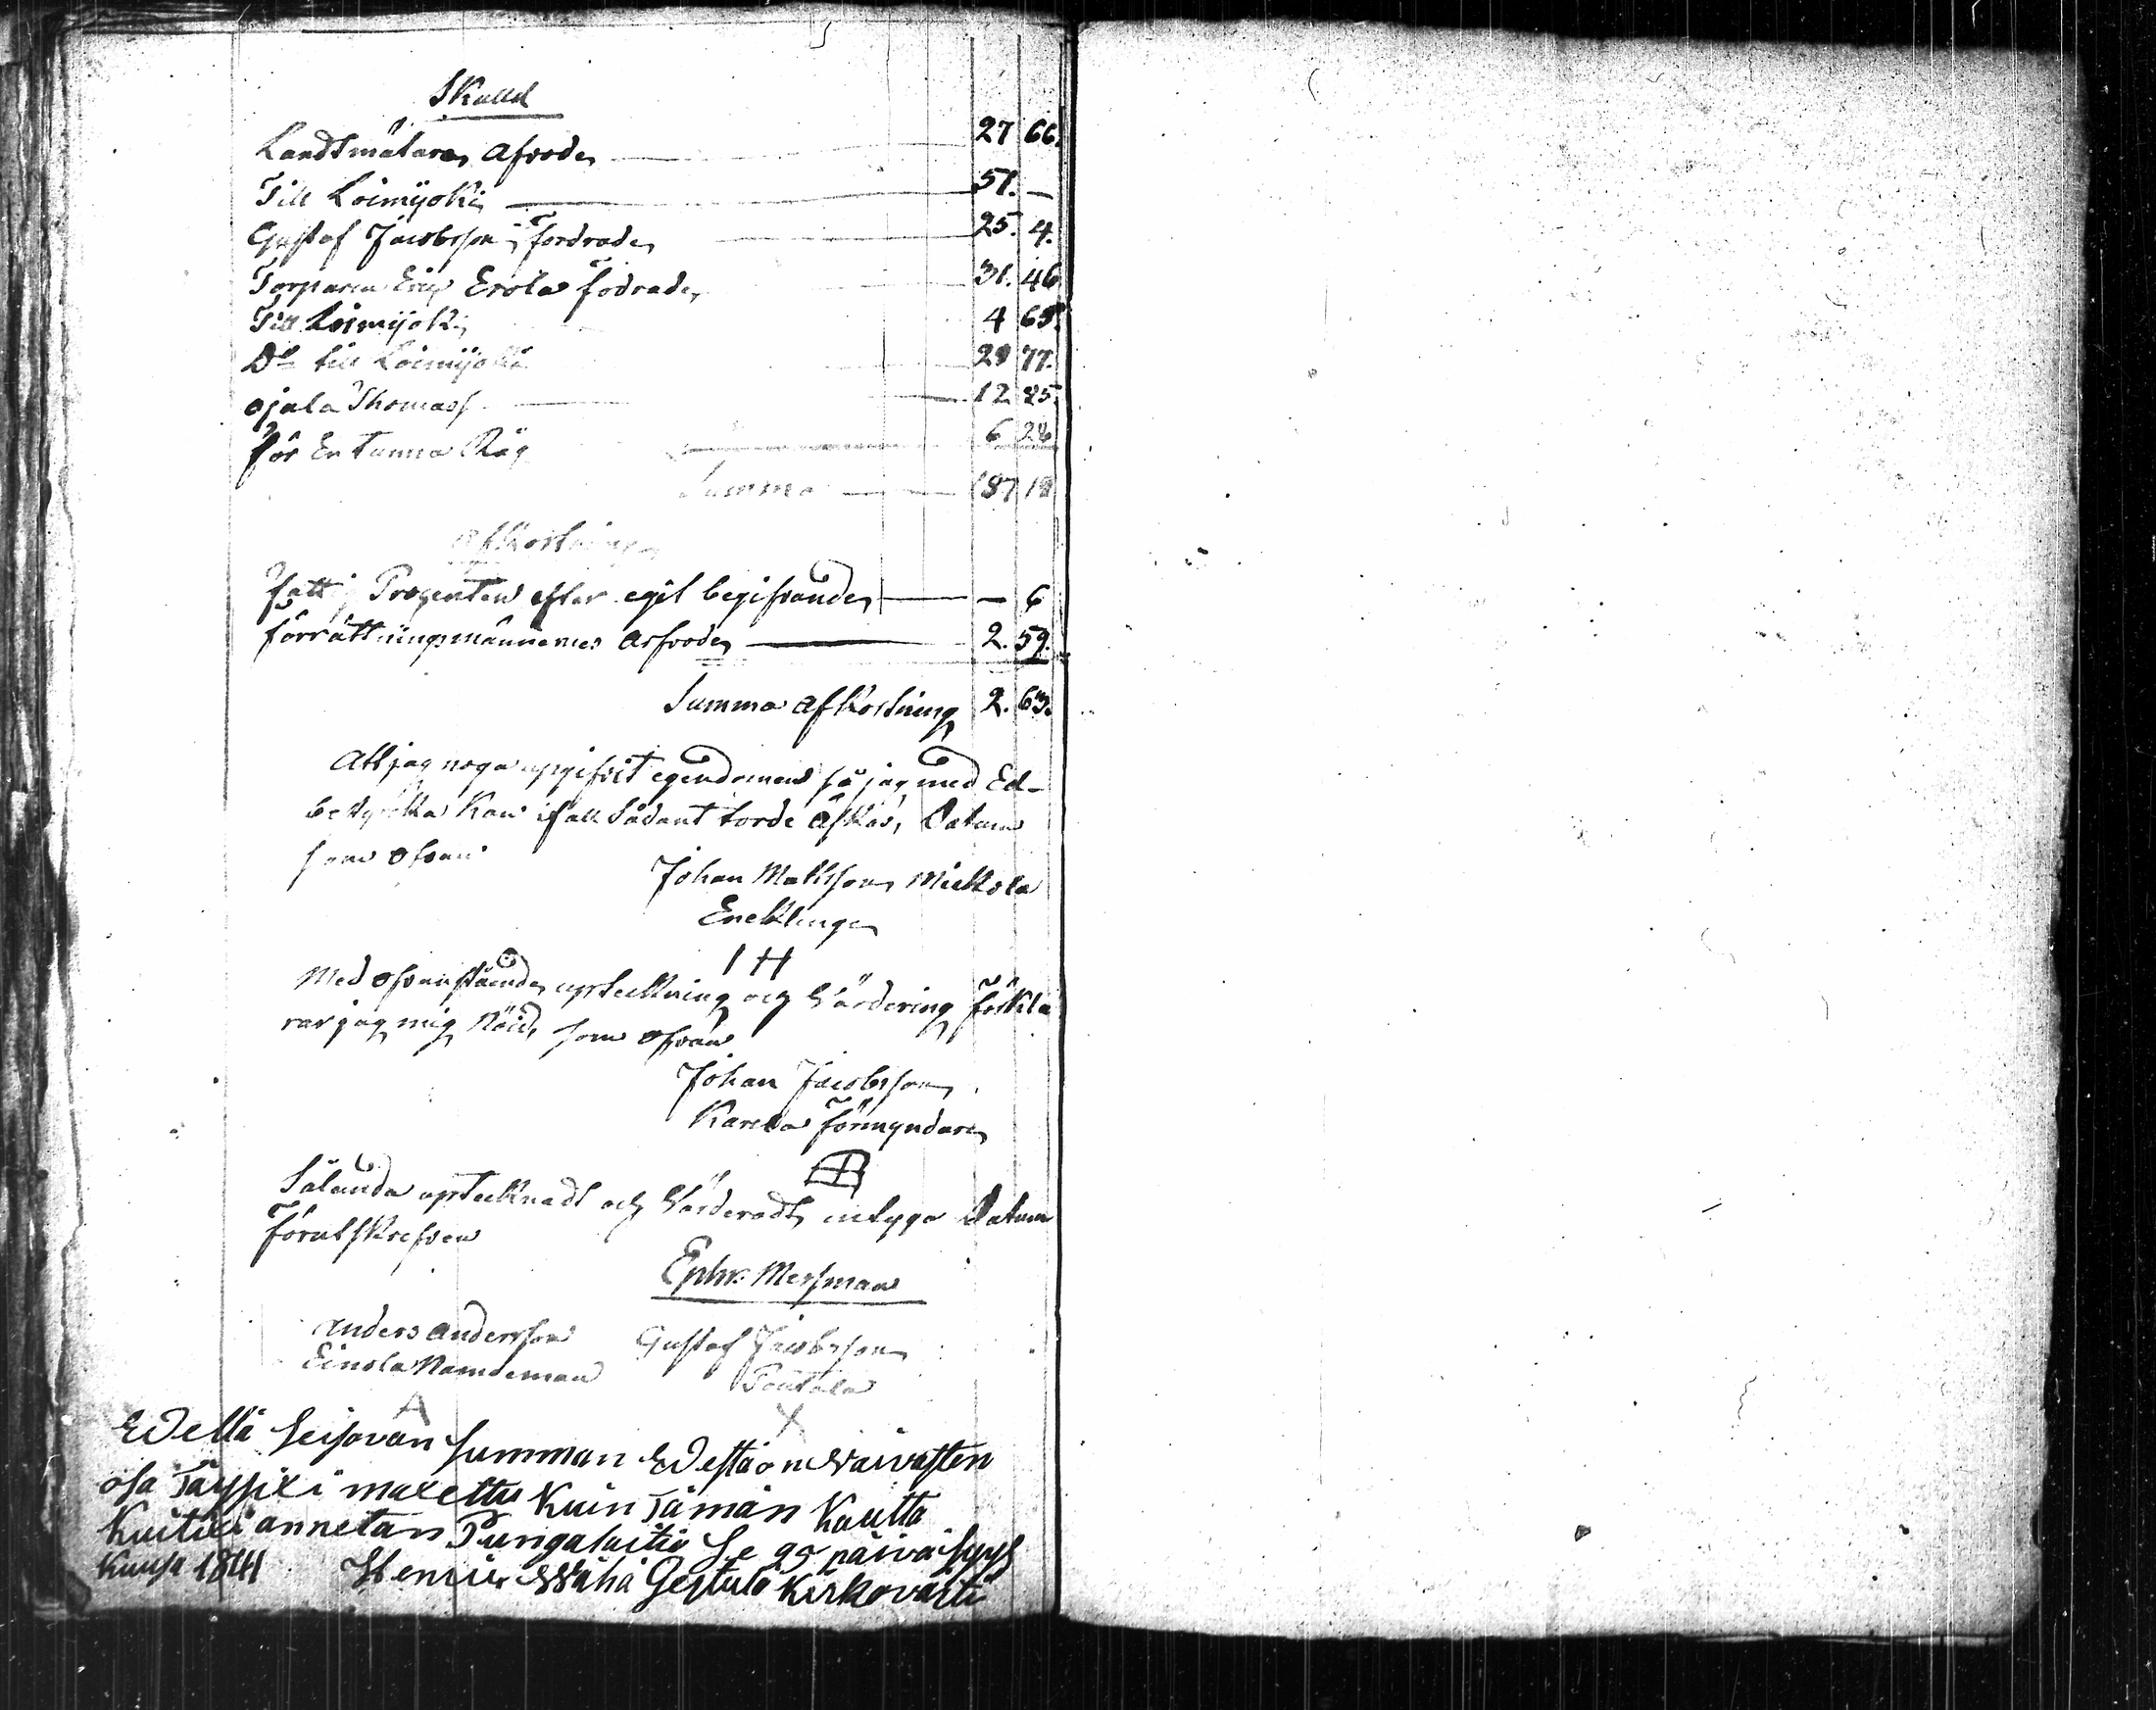 Skuld
Landtmätaren Afvode 27 66.
Till Loimijoki 57. —
Gustaf Jacobsson fordrade 25. 4.
Torparen Eric Erola fodrade 31. 46
Till Loimijoki 4 65.
Do till Loimijoki 29 77.
Ojala Thomas 12 25.
för En tunna Råg 6 28
Summa 187 18
Afkortningen
fattig Procenten efter egit begifvande — 6
förrättningsmännernes Arfvode 2. 59.
Summa Afkortning 2. 63.
Att jag noga upgifvit egendomen så jag med Ed
betyga kan ifall sådant torde äskas, Datum
som ofvan
Johan Mattsson Mickola
Encklinge
I H
Med ofvanstående upteckning och Värdering förkla
rar jag mig nöid, som ofvan
Johan Jacobsson
Karela förmyndare
Sålunda uptecknadt och Värderadt, intyga Datum
förutskrefven
Ephr. Messman
Anders Andersson Gustaf Jacobsson
Einola Nämdeman Pentala
A X
Edellä seisovan summan Edestä on vaivasten
osa Täysixi maxettu Kuin Tämän Kautta
Kuitixi annetan Pungalaitio Se 25 päivä syys
Kuusa 1841 Henric Wähä Gertula Kirkovärti